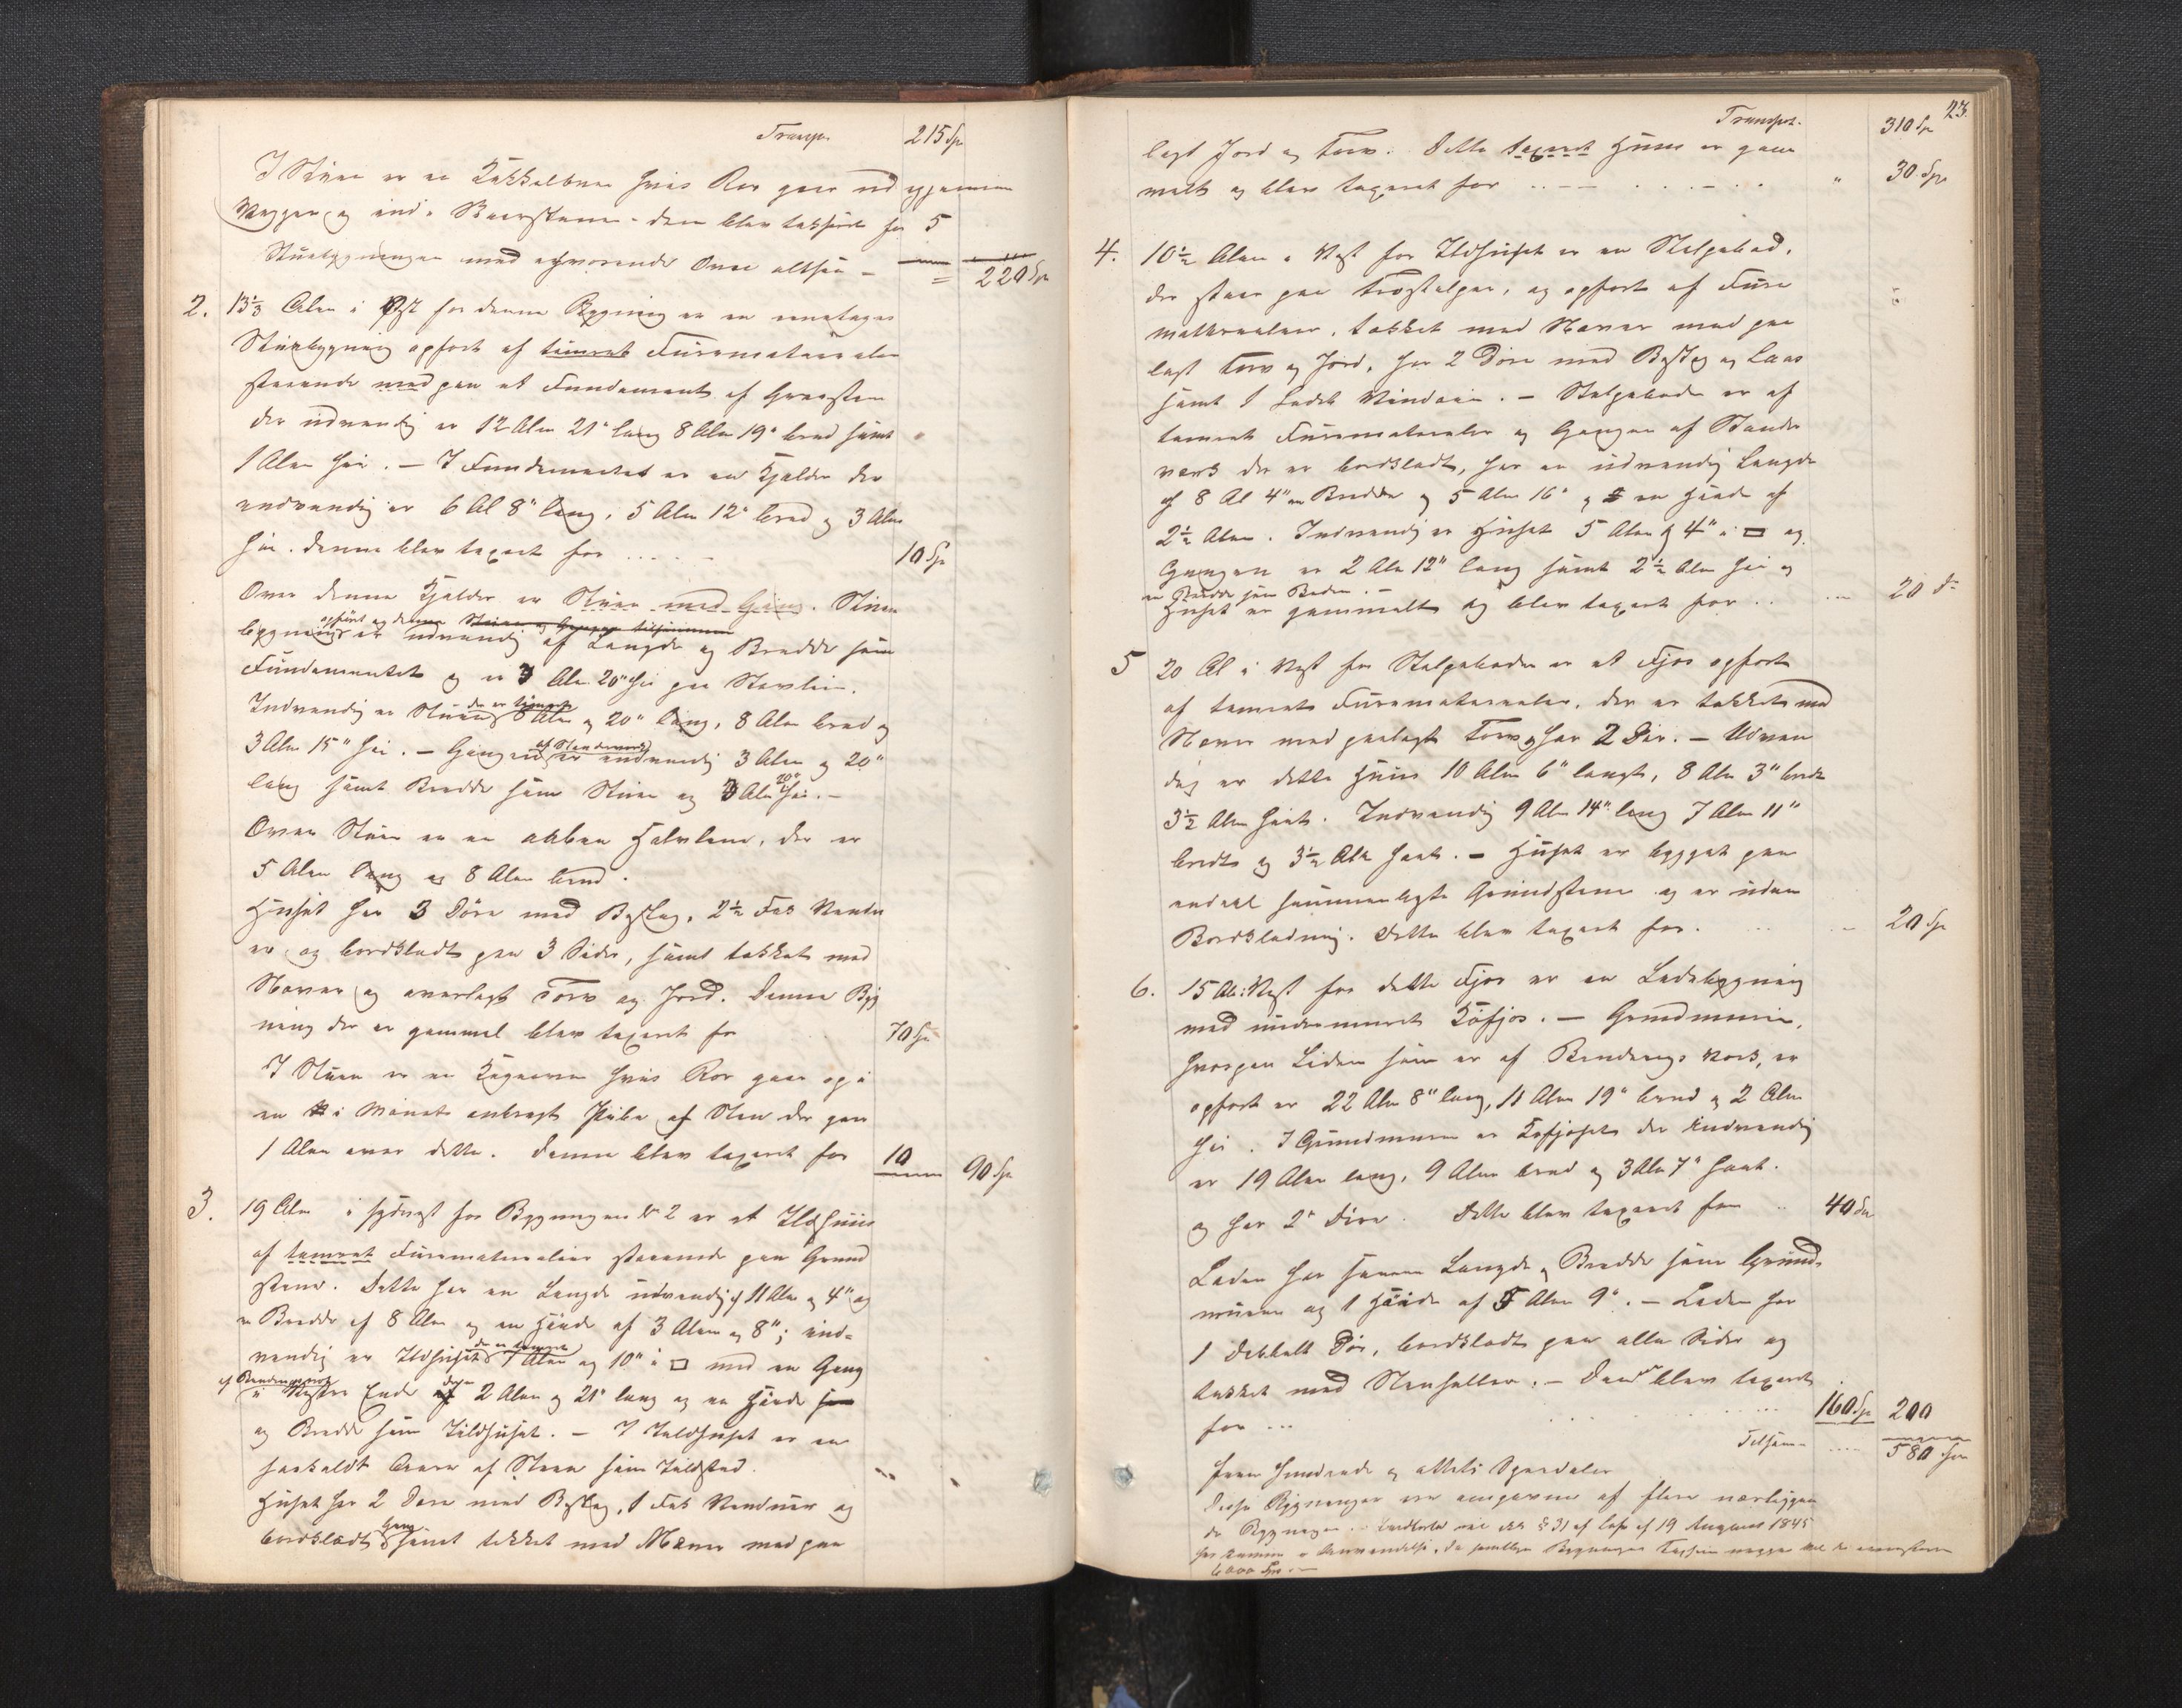 Transp. 215 Sp
I Stuen er en Kakkelovn hvis Rør gaar ud igjennem
Væggen og ind i Skorstenen - den blev taxeret for 5
Stuebygningen med nysnævnte Ovn altsaa - = 220 Sp
2. 13 1/3 Alen i Øst for denne Bygning er en eenetages
Stuebygning opført af tømret Furumaterialer
staaende med paa et Fundament af Graasten
der udvendig er 12 Alen 21" lang 8 Alen 19" bred samt
1 Alen høi. - I Fundamentet er en Kjelder der
indvendig er 6 Al 8" lang, 5 Alen 12" bred og 3 Alen
høi. denne blev taxeret for .... 10 Sp
Over denne Kjelder er Stuen med Gang. Stue
bygningen er udvendig af Længde og Bredde som
Fundamentet og er 3 Alen 20" høi paa Stavlien.
Indvendig er Stuen, der er tømret 8 Alen og 20" lang, 8 Alen bred og
3 Alen 15" høi. - Gangen af Stenderværk er indvendig 3 Alen og 20"
lang samt Bredde som Stuen og 3 Alen 20" høi. -
Over Stuen er en aaben Halvlem, der er
5 Alen lang og 8 Alen bred.
Huset har 3 Døre med Beslag, 2 1/2 Fag Vindu
er og bordklædt paa 3 Sider, samt tækket med
Næver og overlagt Torv og Jord. Denne Byg
ning der er gammel blev taxeret for 70 Sp
I Stuen er en Kogeovn hvis Rør gaar op i
en i Mønet anbragt Pibe af Sten der gaar
1 Alen over dette. Denne blev taxeret for 10 90 Sp
3. 19 Alen i Sydvest for Bygningen No 2 er et Ildhuus
af tømret Furumaterialier staaende paa Grund
stene. Dette har en Længde udvendig af 11 Alen og 4" og
en Bredde af 8 Alen og en Høide af 3 Alen og 8"; ind-
vendig er Ildhuset der er tømret 7 Alen og 10" i □ med en Gang
af Bindingsværk i Vestre Ende der er 2 Alen og 21" lang og en Høide
og Bredde som Ildhuset. - I Ildhuset er en
saakaldt Aare af Steen som Ildsted.
Huset har 2 Døre med Beslag, 1 Fag Vinduer og
bordklædt Gang samt tækket med Næver med paa
Transport. 310 Sp 23.
lagt Jord og Torv. Dette taxeret Huus er gam
melt og blev taxeret for .. - - . . . - . . " 30 Sp
4. 10 1/2 Alen i Vest for Ildhuset er en Stolpebod,
der staar paa Træstolper, og opført af Furu
materialier, tækket med Næver med paa
lagt Torv og Jord, har 2 Døre med Beslag og Laas
samt 1 lidet Vindue. - Stolpeboden er af
tømret Furumaterialer og Gangen af Stender
værk der er bordklædt, har en udvendig Længde
af 8 Al 4" en Bredde af 5 Alen 16" og en Høide af
2 1/2 Alen. Indvendig er Huset 5 Alen og 4" i □ og
Gangen er 2 Alen 12" lang samt 2 1/2 Alen høi og
en Bredde som Boden. -
Huset er gammelt og blev taxeret for .. ... 20 do
5 20 Al i Vest for Stolpeboden er et Fjøs opført
af tømret Furumaterialer, der er tækket med
Næver med paalagt Torv og har 2 Dør. - Udven
dig er dette Huus 10 Alen 6" langt, 8 Alen 3" bredt
3 1/2 Alen høit. Indvendig 9 Alen 14" lang 7 Alen 11"
bredt og 3 1/2 Alen høit. - Huset er bygget paa
endeel sammenlagte Grundstene og er uden
Bordklædning. Dette blev taxeret for. .. - 20 Sp
6. 15 Al i Vest for dette Fjøs er en Ladebygning
med undermuret Kofjøs. - Grundmuren,
hvorpaa Laden som er af Bindings værk, er
opført er 22 Alen 8" lang, 11 Alen 19" bred og 2 Alen
høi. I Grundmuren er Kofjøset der indvendig
er 19 Alen lang, 9 Alen bred og 3 Alen 7" høit.
og har 2 Døre. Dette blev taxeret for .. 40 Sp
Laden har samme Længde og Bredde som Grund-
muren og 1 Høide af 5 Alen 9". - Laden har
1 dobbelt Dør, bordklædt paa alle Sider og
tækket med Stenheller. - Denne blev taxeret
for ... 160 Sp 200
Tilsam- .... 580 Spd
Fem hundrede og otteti Speciedaler
Disse Bygninger ere omgivne af flere nærliggen
de Bygninger. § 31 af Lov af 19 August 1845
Bygningers
6000 Spd. -